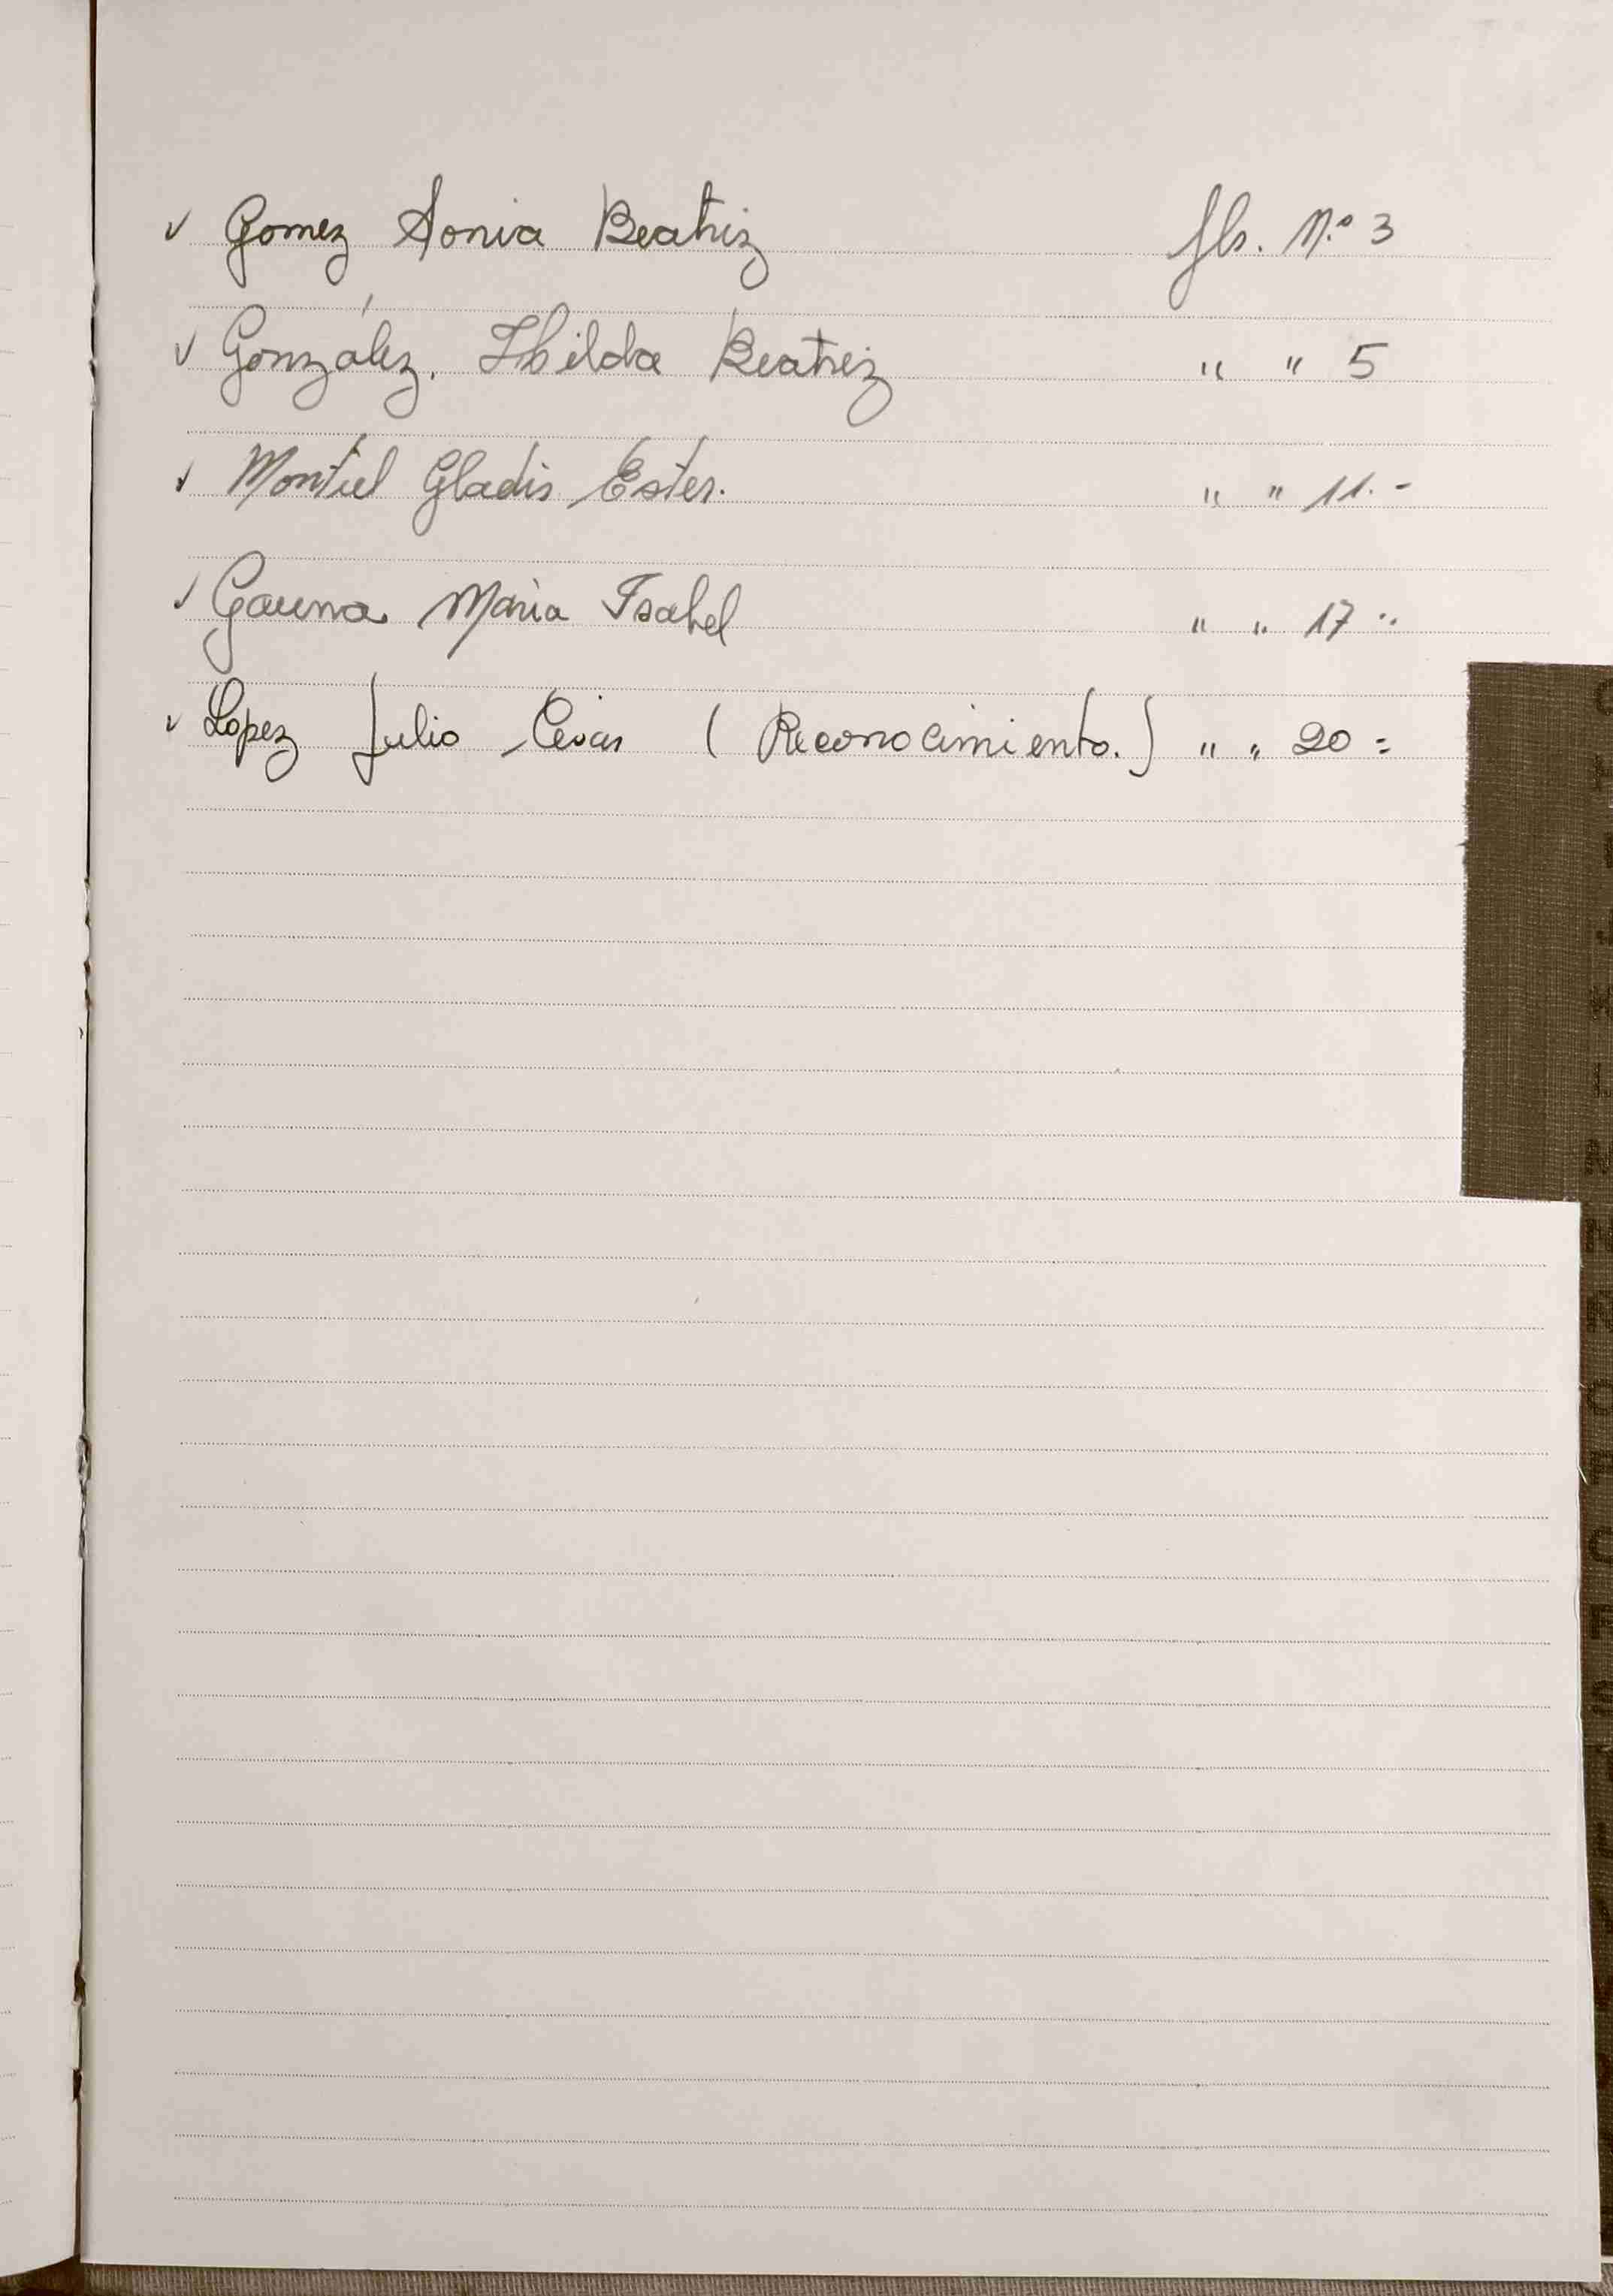 ✓ Gomez Sonia Beatriz fls. N.º 3
✓ González. Thilda Beatriz " " 5
✓ Montiel Gladis Ester. " " 11.-
✓ Gauna Maria Isabel " " 17 "
✓ Lopez Julio Cesar (Reconocimiento.) " " 20 =